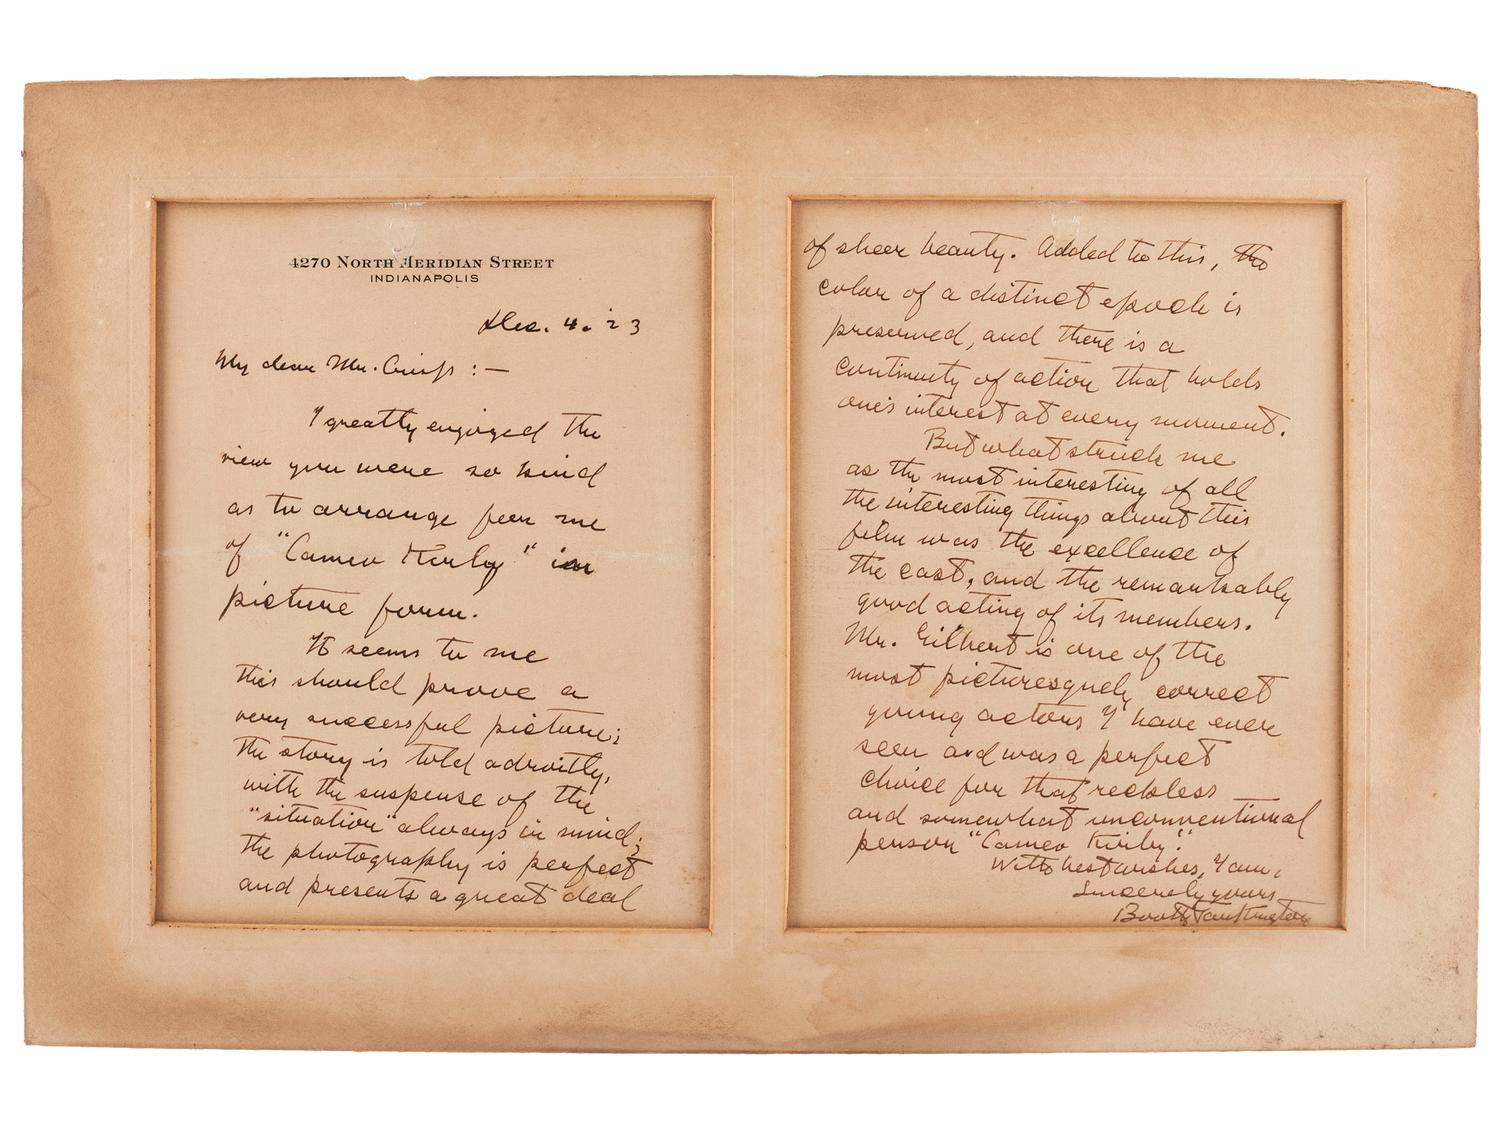 4270 North Meridian Street
INDIANAPOLIS
Dec. 4. '23
My dear Mr. Crisp :—
I greatly enjoyed the
view you were so kind
as to arrange for me
of "Cameo Kirby" in
picture form.
It seems to me
this should prove a
very successful picture;
the story is told adroitly,
with the suspense of the
"situation" always in mind;
the photography is perfect
and presents a great deal
of sheer beauty. Added to this, the
color of a distinct epoch is
preserved, and there is a
continuity of action that holds
one's interest at every moment.
But what struck me
as the most interesting of all
the interesting things about this
film was the excellence of
the cast, and the remarkably
good acting of its members.
Mr. Gilbert is one of the
most picturesquely correct
young actors I have ever
seen and was a perfect
choice for that reckless
and somewhat unconventional
person "Cameo Kirby."
With best wishes, I am,
Sincerely yours
Booth Tarkington